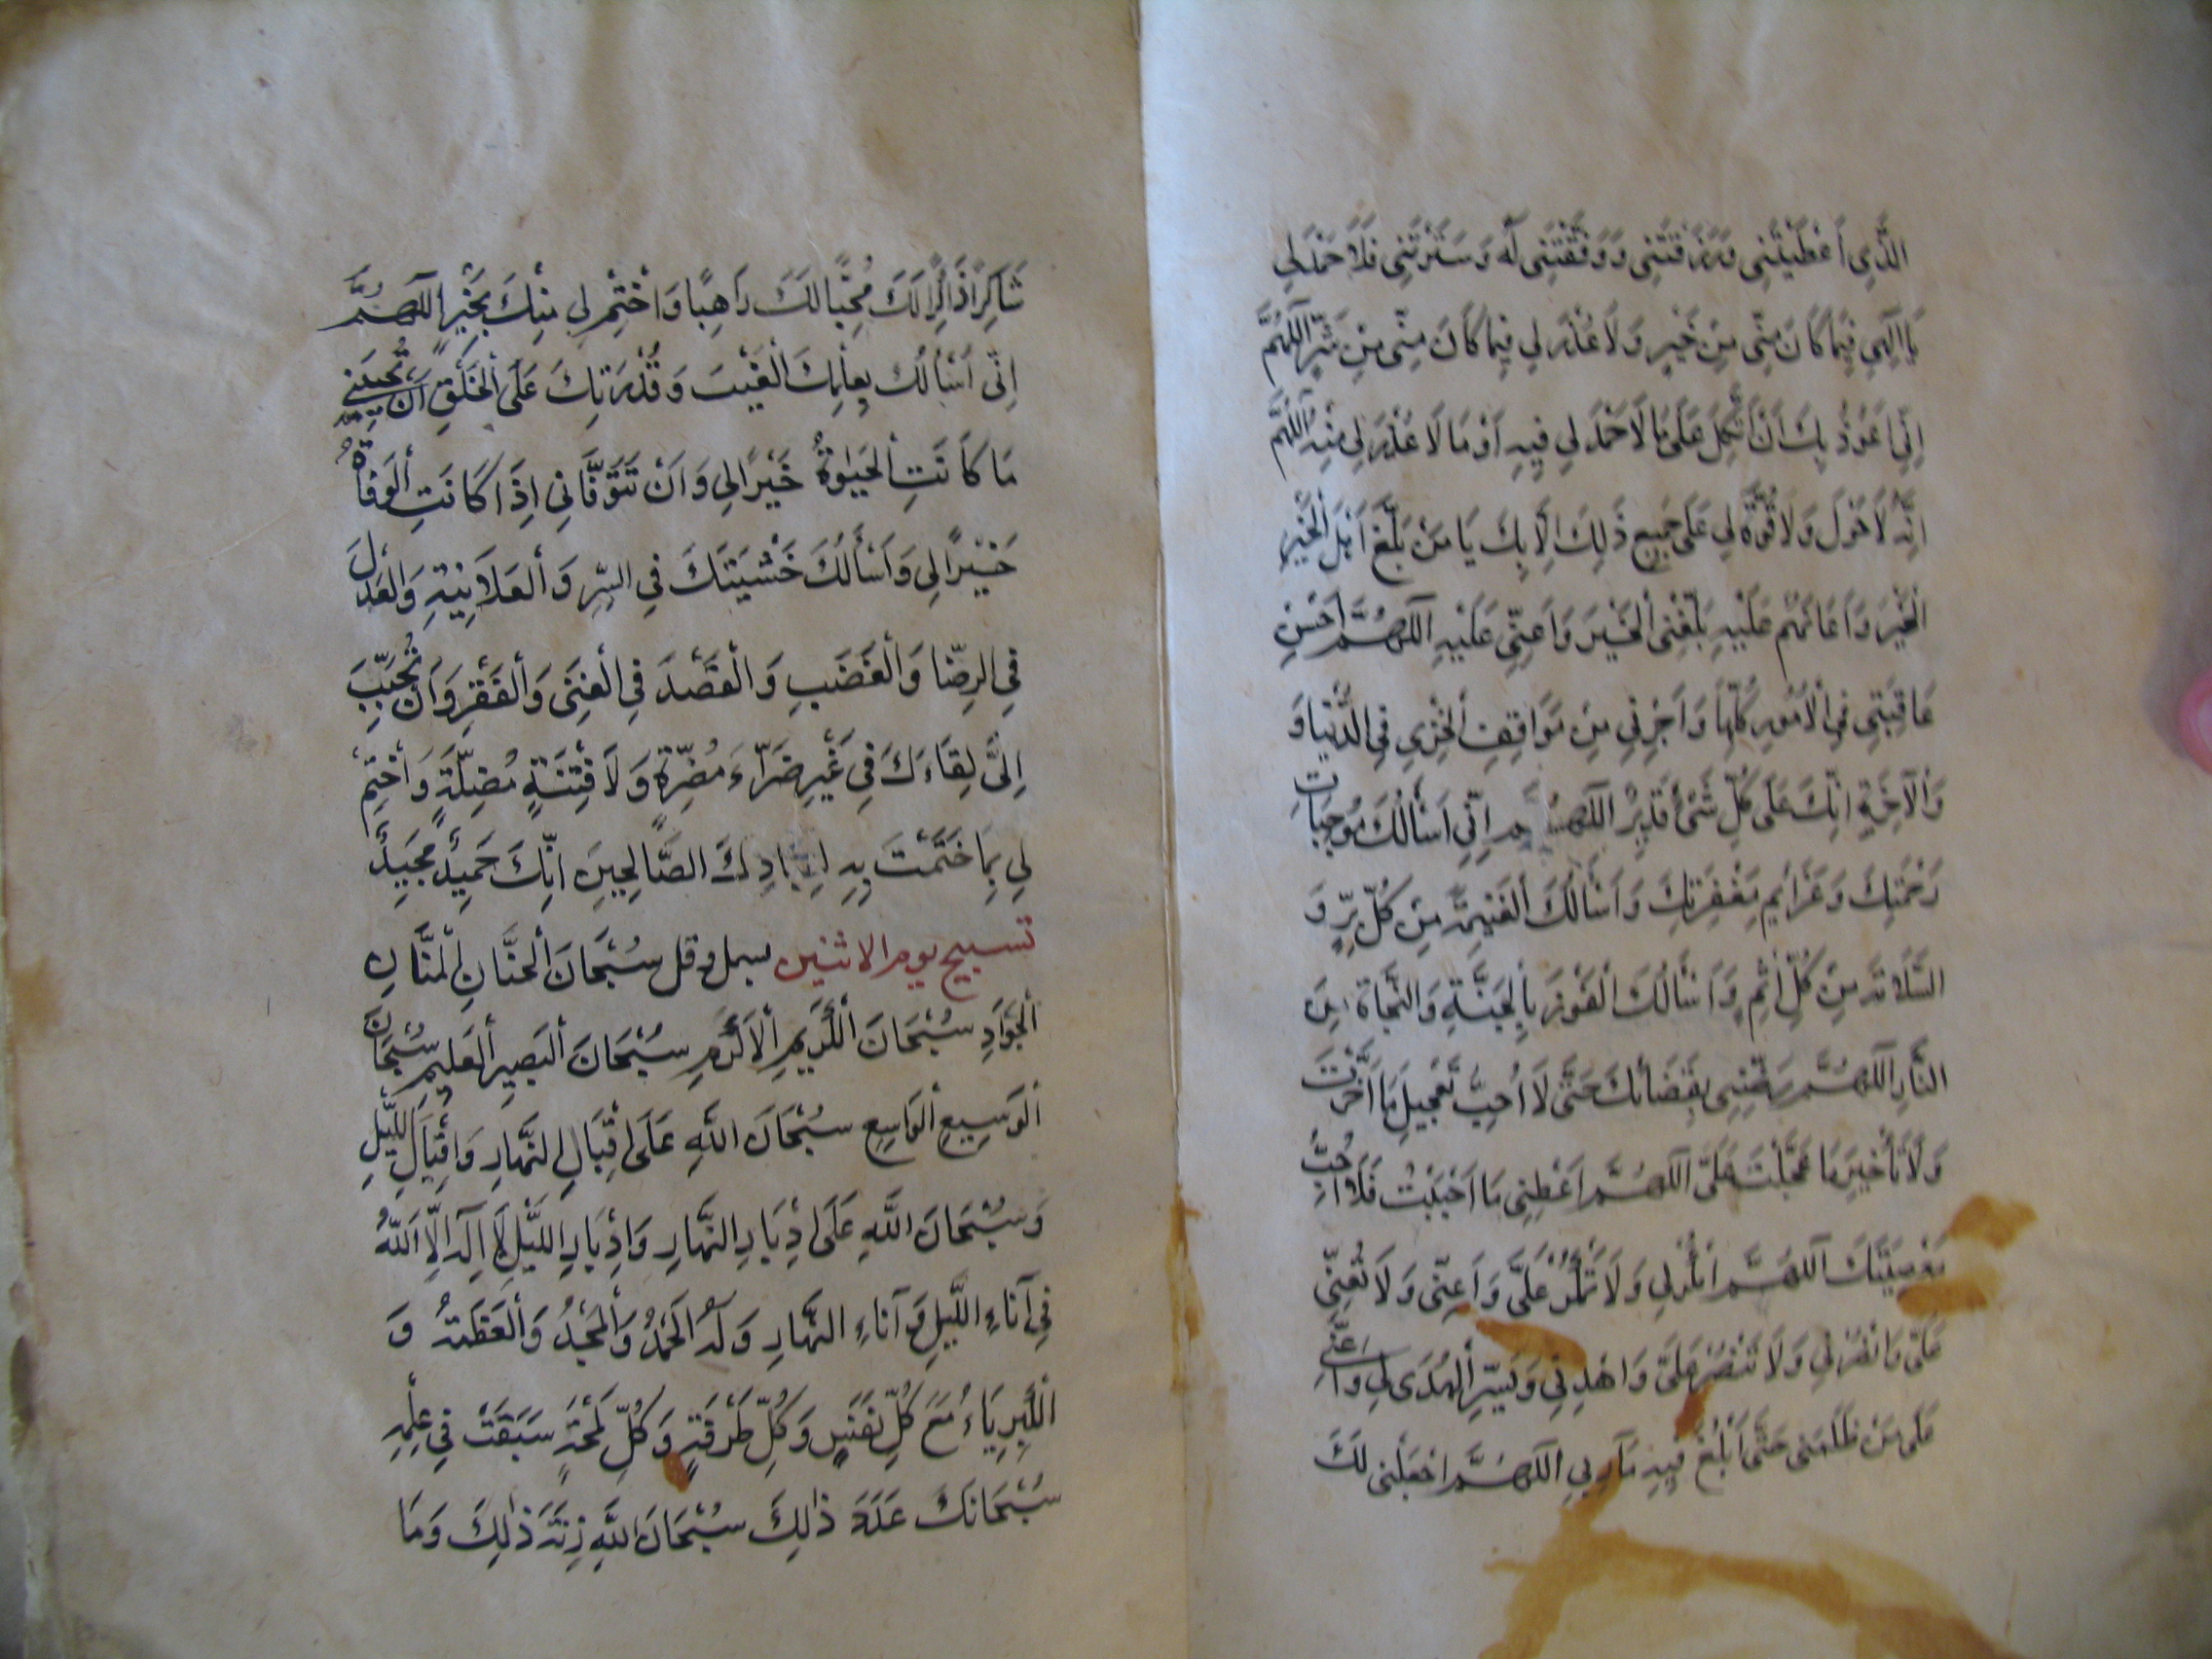 الَّذِي أَعْطَيْتَنِي وَرَزَقْتَنِي وَوَفَّقْتَنِي لَهُ وَسَتَرْتَنِي فَلَا حَمْدَ لِي
يَا اِلَهِي فِيمَا كَانَ مِنِّي مِنْ خَيْرٍ وَلَا عُذْرَ لِي فِيمَا كَانَ مِنِّي مِنْ شَرٍّ اَللَّهُمَّ
اِنِّي اَعُوذُ بِكَ اَنْ اَتَّكِلَ عَلَى مَا لَا حَمْدَ لِي فِيهِ اَوْ مَا لَا عُذْرَ لِي مِنْهُ اَللَّهُمَّ
اِنَّهُ لَا حَوْلَ وَلَا قُوَّةَ لِي عَلَى جَمِيعِ ذَلِكَ اِلَّا بِكَ يَا مَنْ بَلَّغَ اَهْلَ الْخَيْرِ
الْخَيْرَ وَاَعَانَهُمْ عَلَيْهِ بَلِّغْنِي الْخَيْرَ وَاَعِنِّي عَلَيْهِ اَللَّهُمَّ اَحْسِنْ
عَاقِبَتِي فِي الْاُمُورِ كُلِّهَا وَاَجِرْنِي مِنْ مَوَاقِفِ الْخِزْيِ فِي الدُّنْيَا وَ
وَالْآخِرَةِ اِنَّكَ عَلَى كُلِّ شَيْءٍ قَدِيرٌ اَللَّهُمَّ اِنِّي اَسْأَلُكَ مُوجِبَاتِ
رَحْمَتِكَ وَعَزَائِمَ مَغْفِرَتِكَ وَاَسْأَلُكَ الْغَنِيمَةَ مِنْ كُلِّ بِرٍّ وَ
السَّلَامَةَ مِنْ كُلِّ اِثْمٍ وَاَسْأَلُكَ الْفَوْزَ بِالْجَنَّةِ وَالنَّجَاةَ مِنَ
النَّارِ اَللَّهُمَّ رَضِّنِي بِقَضَائِكَ حَتَّى لَا اُحِبَّ تَعْجِيلَ مَا اَخَّرْتَ
وَلَا تَأْخِيرَ مَا عَجَّلْتَ عَلَيَّ اَللَّهُمَّ اَعْطِنِي مَا اَحْبَبْتُ فَلَا اُحِبُّ
مَعْصِيَتَكَ اَللَّهُمَّ امْكُرْ لِي وَلَا تَمْكُرْ عَلَيَّ وَاَعِنِّي وَلَا تُعِنْ
عَلَيَّ وَانْصُرْنِي وَلَا تَنْصُرْ عَلَيَّ وَاهْدِنِي وَيَسِّرِ الْهُدَى لِي وَاَعِنِّي
عَلَى مَنْ ظَلَمَنِي حَتَّى اَبْلُغَ فِيهِ مَآرِبِي اَللَّهُمَّ اجْعَلْنِي لَكَ
شَاكِرًا ذَاكِرًا لَكَ مُحِبًّا لَكَ رَاهِبًا وَاخْتِمْ لِي مِنْكَ بِخَيْرٍ اَللَّهُمَّ
اِنِّي اَسْأَلُكَ بِعِلْمِكَ الْغَيْبَ وَقُدْرَتِكَ عَلَى الْخَلْقِ اَنْ تُحْيِيَنِي
مَا كَانَتِ الْحَيٰوةُ خَيْرًا لِي وَاَنْ تَتَوَفَّانِي اِذَا كَانَتِ الْوَفَاةُ
خَيْرًا لِي وَاَسْأَلُكَ خَشْيَتَكَ فِي السِّرِّ وَالْعَلَانِيَةِ وَالْعَدْلَ
فِي الرِّضَا وَالْغَضَبِ وَالْقَصْدَ فِي الْغِنَى وَالْفَقْرِ وَاَنْ تُحَبِّبَ
اِلَيَّ لِقَاءَكَ فِي غَيْرِ ضَرَّاءَ مُضِرَّةٍ وَلَا فِتْنَةٍ مُضِلَّةٍ وَاخْتِمْ
لِي بِمَا خَتَمْتَ بِهِ لِعِبَادِكَ الصَّالِحِينَ اِنَّكَ حَمِيدٌ مَجِيدٌ
تسبيح يوم الاثنين بسمل وقل سُبْحَانَ الْحَنَّانِ الْمَنَّانِ
الْجَوَادِ سُبْحَانَ الْكَرِيمِ الْاَكْرَمِ سُبْحَانَ الْبَصِيرِ الْعَلِيمِ سُبْحَانَ
الْوَسِيعِ الْوَاسِعِ سُبْحَانَ اللَّهِ عَلَى اِقْبَالِ النَّهَارِ وَاِقْبَالِ اللَّيْلِ
وَسُبْحَانَ اللَّهِ عَلَى اِدْبَارِ النَّهَارِ وَاِدْبَارِ اللَّيْلِ لَا اِلَهَ اِلَّا اللَّهُ
فِي آنَاءِ اللَّيْلِ وَآنَاءِ النَّهَارِ وَلَهُ الْحَمْدُ وَالْمَجْدُ وَالْعَظَمَةُ وَ
الْكِبْرِيَاءُ مَعَ كُلِّ نَفَسٍ وَكُلِّ طَرْفَةٍ وَكُلِّ لَمْحَةٍ سَبَقَتْ فِي عِلْمِهِ
سُبْحَانَكَ عَدَدَ ذٰلِكَ سُبْحَانَ اللَّهِ زِنَةَ ذٰلِكَ وَمَا